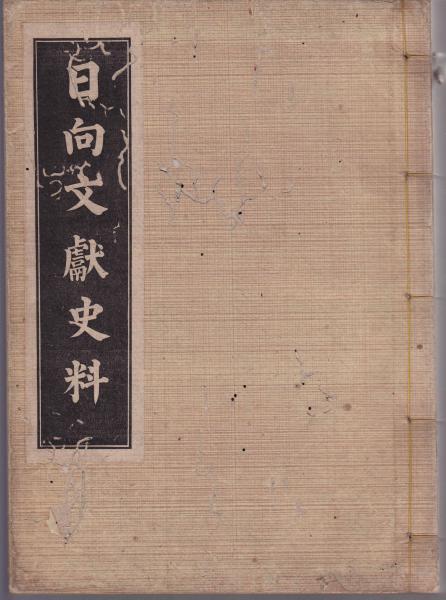 日向文獻史料